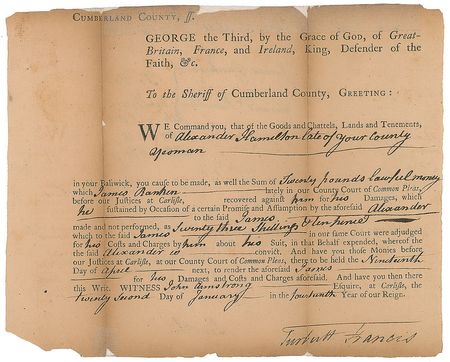 CUMBERLAND COUNTY, ſſ.
GEORGE the Third, by the Grace of GOD, of Great-
Britain, France, and Ireland, King, Defender of the
Faith, &c.
To the Sheriff of Cumberland County, GREETING:
WE Command you, that of the Goods and Chattels, Lands and Tenements,
of Alexander Hamelton late of your County
Yeoman
in your Baliwick, you cauſe to be made, as well the Sum of Twenty pounds lawful money
which James Rankin lately in our County Court of Common Pleas,
before our Juſtices at Carliſle, recovered againſt him for his Damages, which
he ſuſtained by Occaſion of a certain Promiſe and Aſſumption by the aforeſaid Alexander
to the ſaid James
made and not performed, as Twenty three Shillings & ten pence
which to the ſaid James in our ſame Court were adjudged
for his Coſts and Charges by him about his Suit, in that Behalf expended, whereof the
ſaid Alexander is convict. And have you thoſe Monies before
our Juſtices at Carliſle, at our County Court of Common Pleas, there to be held the Nineteenth
Day of April next, to render the aforeſaid James
for his Damages and Coſts and Charges aforeſaid. And have you then there
this Writ. WITNESS John Armstrong Eſquire, at Carliſle, the
Twenty Second Day of January in the fourteenth Year of our Reign.
Turbutt Francis